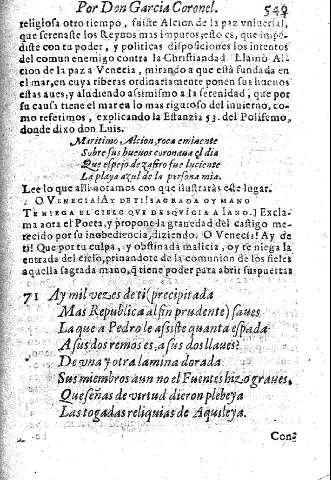 Por Don Garcia Coronel. 549
religiosa otro tiempo, fuiste Alcion de la paz vniuersal,
que serenaste los Reynos mas impuros; esto es, que impe-
diste con tu poder, y politicas disposiciones los intentos
del comun enemigo contra la Christiandad. Llamò Al-
cion de la paz a Venecia, mirando a que està fundada en
el mar, en cuya riberas ordinariamente ponen sus hueuos
estas aues, y aludiendo assimismo a la serenidad, que por
su causa tiene el mar en lo mas riguroso del inuierno, co-
mo referimos, explicando la Estanzia 53. del Polifemo,
donde dixo don Luis.
Maritimo Alcion, roca eminente
Sobre sus hueuos coronaua el dia
Que espejo de zafiro fue luciente
La playa azul de la persona mia.
Lee lo que alli notamos con que ilustraràs este lugar.
O VENECIA! AY DE TI! SAGRADA OY MANO
TE NIEGA EL CIELO QVE DESQVICIA A LANO.] Excla-
ma aora el Poeta, y propone la grauedad del castigo me-
recido por su inobediencia, diziendo. O Venecia! Ay de
ti! Que por tu culpa, y obstinada malicia, oy te niega la
entrada del cielo, priuandote de la comunion de los fieles
aquella sagrada mano, q̃ tiene poder para abrir su puertas
71 Ay mil vezes de ti (precipitada
Mas Republica al fin prudente) saues
La que a Pedro le assiste quanta espada
A sus dos remos es, a sus dos llaues?
De vna y otra lamina dorada
Sus miembros aun no el Fuentes hizo graues,
Que señas de virtud dieron plebeya
Las togadas reliquias de Aquileya.
Con-